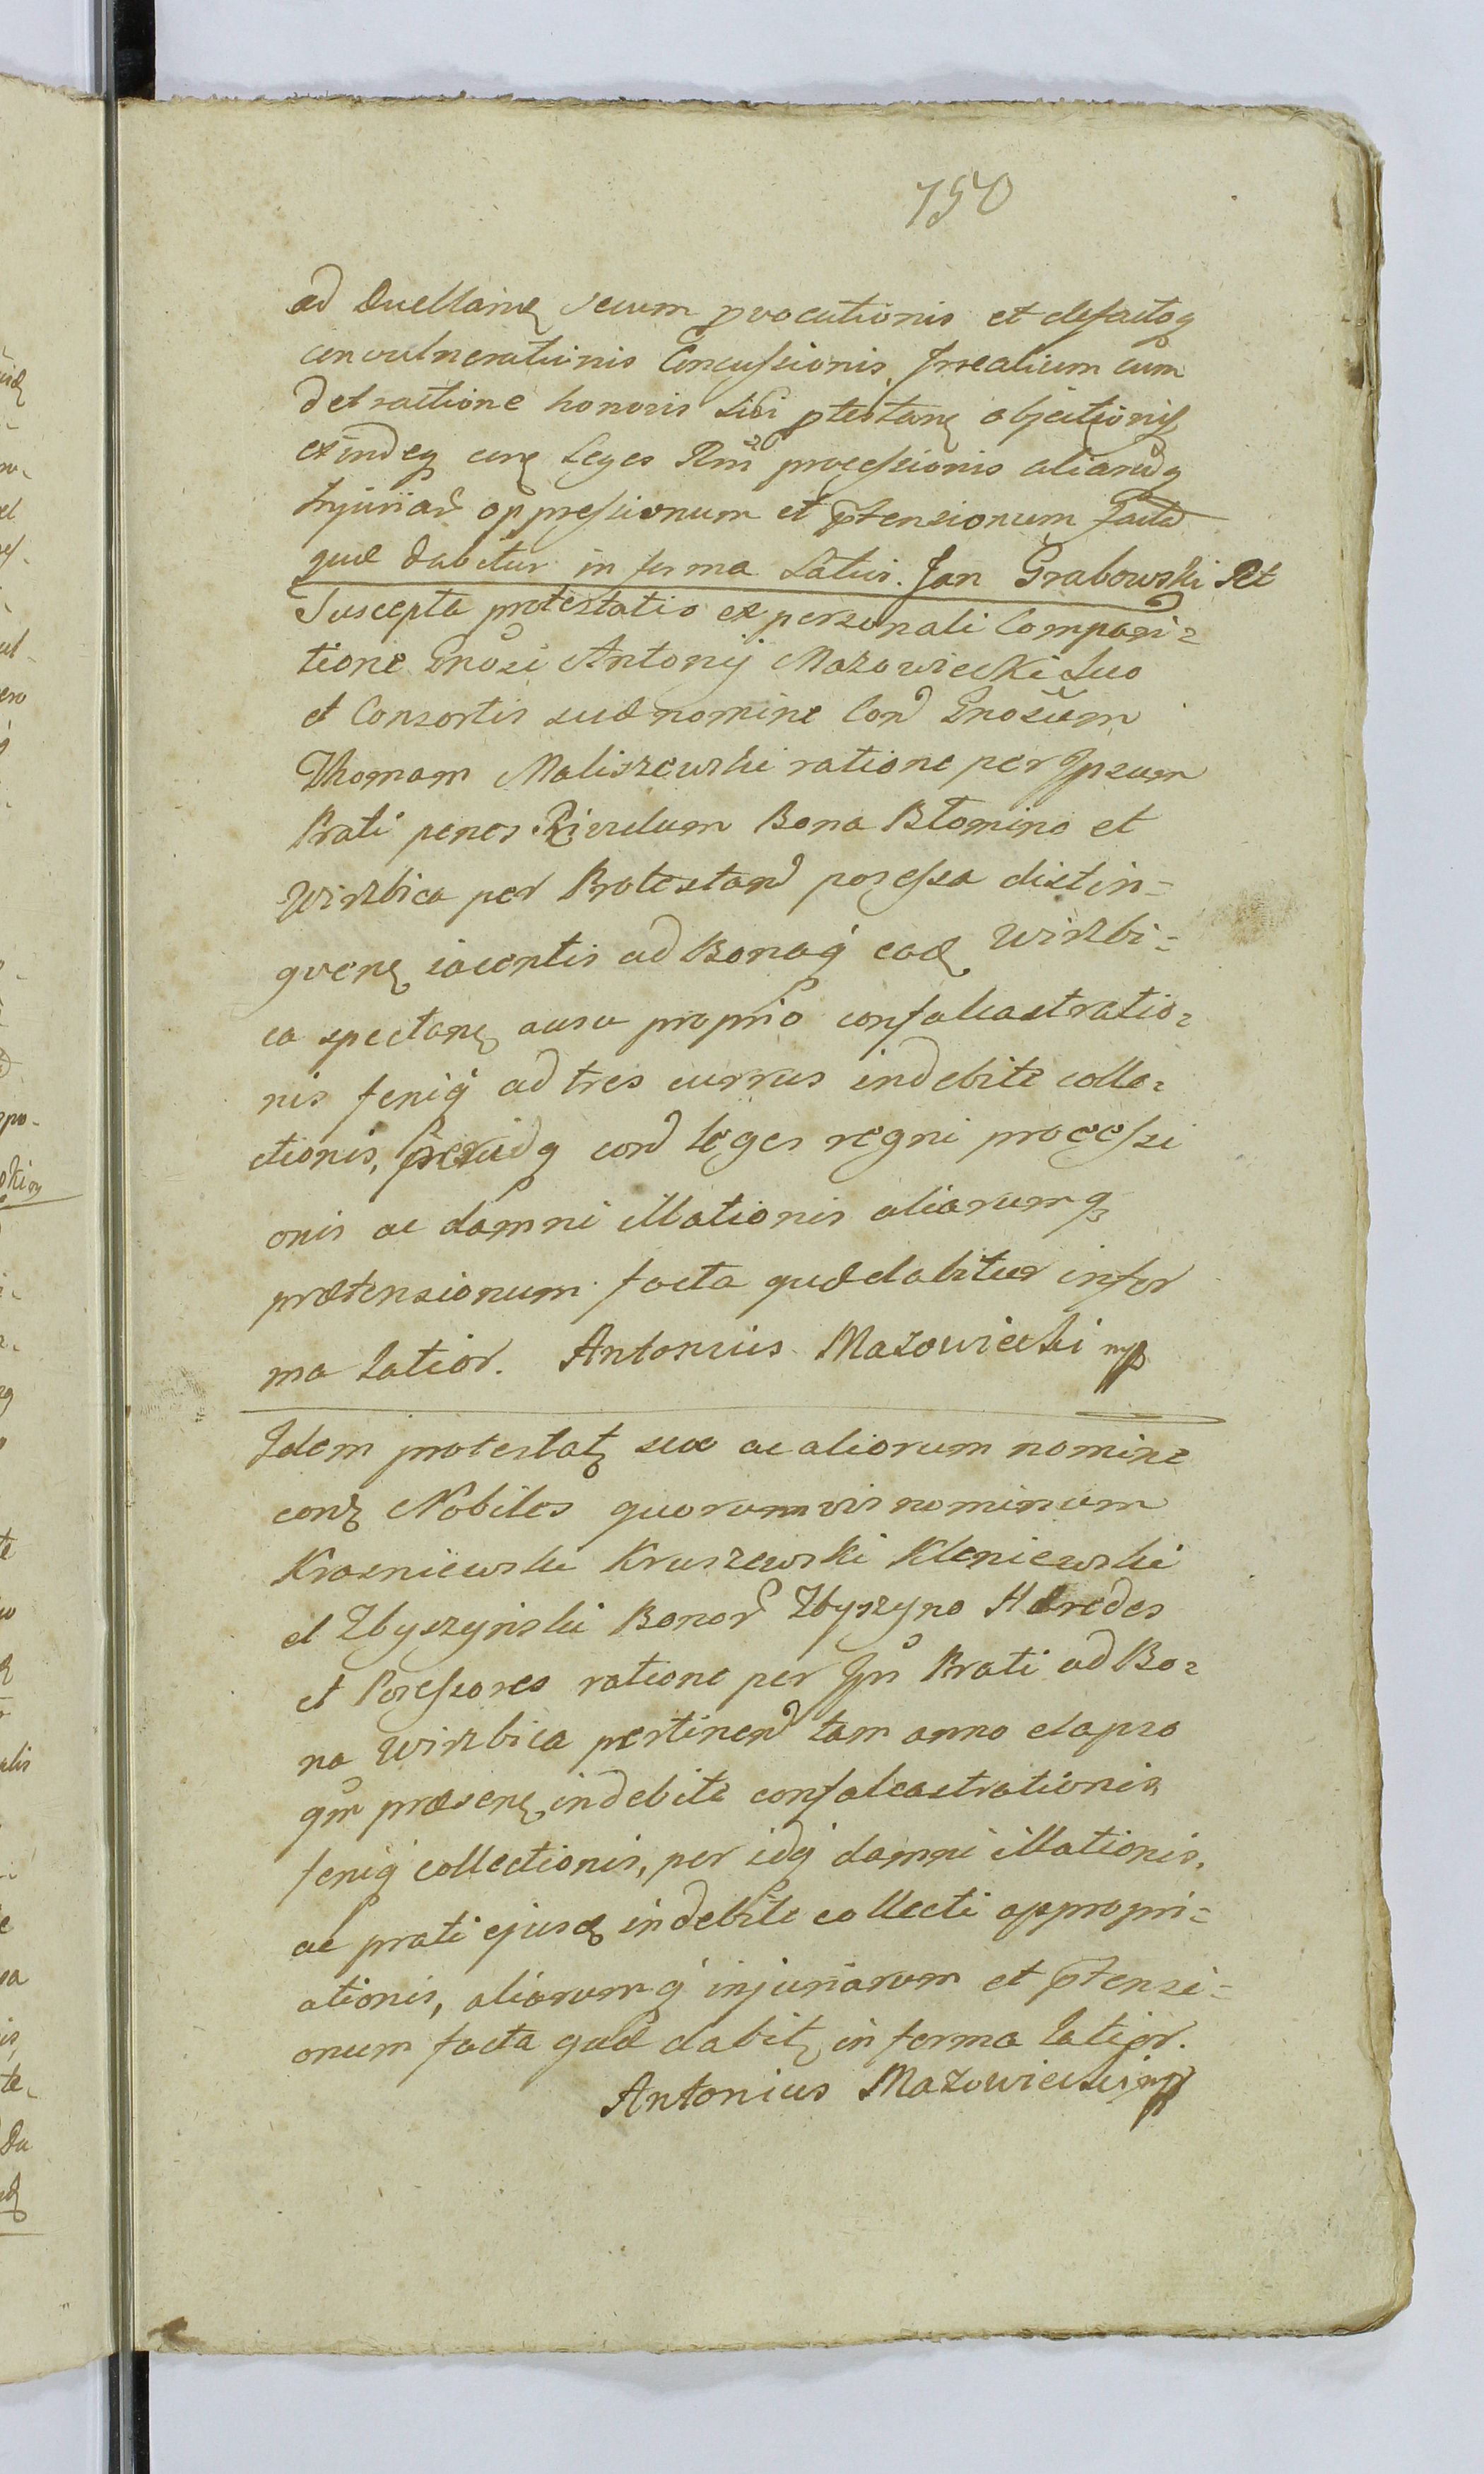 150
ad Duellaine secum provocationis et defactoq
convulnerationis Concussionis, Irrealium cum
detractione honoris sibi ptestane objectionis
exindeq cone Leges Rni processionis aliarudq
Injuriar oppressionum et ptensionum facta
quæ dabitur in forma Latius. Jan Grabowski
Suscepta protestatio ex personali Compari=
tione Gnosi Antonij Mazowiecki suo
et Consortis suæ nomine Con Gnosum
Thomam Maliszewski ratione per Ipsum
Prati penes Rivulum Bona Btomino et
Wirzbica per Protestan possessa distin=
guene iacentis ad Bonaq ead Wirzbi=
ca spectane ausu proprio confalcastratio=
nis feniq ad tres currus indebite colle=
ctionis, con leges regni processi
onis ac damni illationis aliarumq
prætensionum facta quæ dabitur infor
ma Latior. Antonius Mazowiecki mp
Idem protestat suo ac aliorum nomine
con Nobiles quorumvis nominum
Krasniewski Kruszewski Kleniewski
et Zbyszyński Bonor Zbyszyno Hæredes
et Possessores ratione per Ipm Prati ad Bo=
na Wirzbica pertinen tam anno elapso
qm præsene indebite confalcastrationis
feniq collectionis, per idq damni illationis,
ac prati ejusd indebite collecti appropri=
ationis, aliarumq injuriarum et ptensi=
onum facta quæ dabit in forma Latior.
Antonius Mazowiecki mp